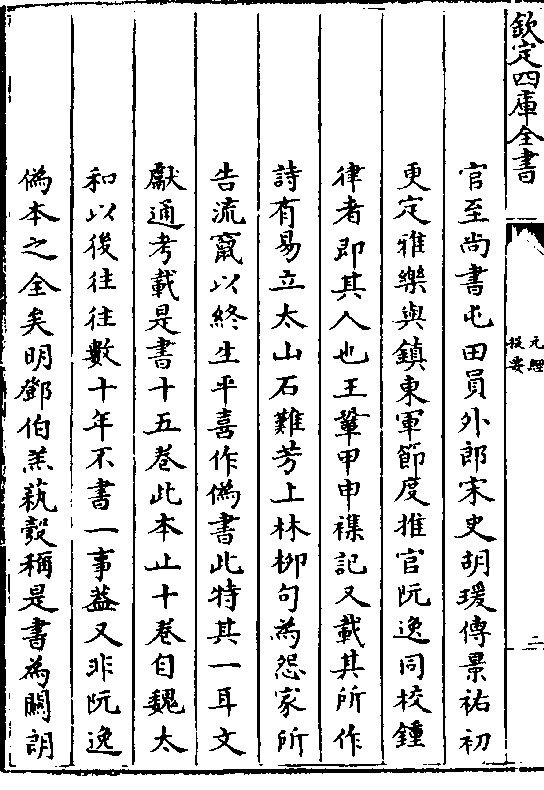 欽定四庫全書
元經提要
二
官至尚書屯田員外郎宋史胡瑗傳景祐初
更定雅樂與鎮東軍節度推官阮逸同校鍾
律者即其人也王鞏甲申襍記又載其所作
詩有易立太山石難芳上林栁句為怨家所
告流竄以終生平喜作偽書此特其一耳文
獻通考載是書十五卷此本止十卷自魏太
和以後往往數十年不書一事葢又非阮逸
偽本之全矣明鄧伯羔蓺彀稱是書為關朗